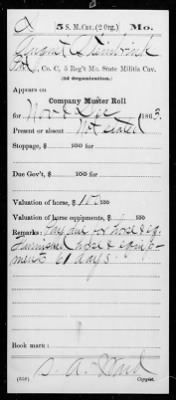 a 5 S. M. Cav. (2 Org.) Mo.
August
Pvt, Co. C, 5 Reg't Mo. State Militia Cav.
(2d Organization.)
Appears on
Company Muster Roll
for Nov & Dec, 1863.
Present or absent Not stated
Stoppage, $ 100 for
Due Gov't, $ 100 for
Valuation of horse, $ 100
Valuation of horse equipments, $ 100
Remarks: Pay due for horse & eq.
furnished horse & equip-
ments 61 days
Book mark:
S. A. Ward
(658) Copyist.